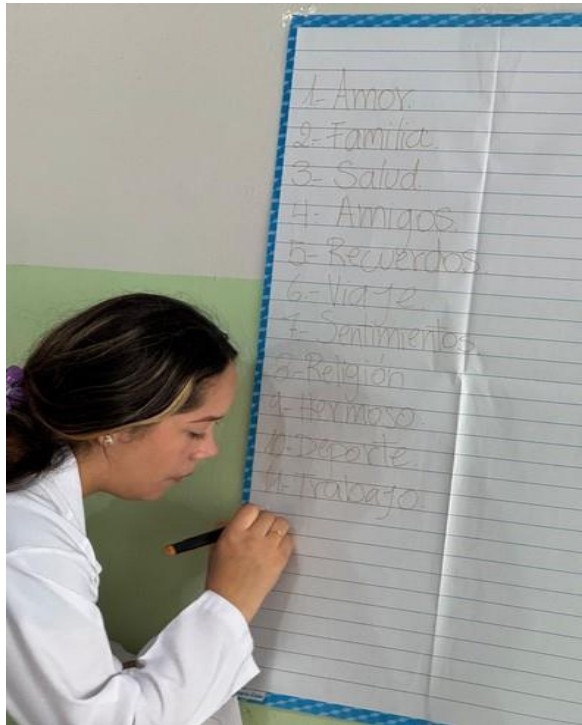 1- Amor.
2- Familia.
3- Salud.
4- Amigos.
5- Recuerdos.
6.- Viaje
7- Sentimientos.
8-Religión
9-Hermoso.
10-Deporte.
11-Trabajo.